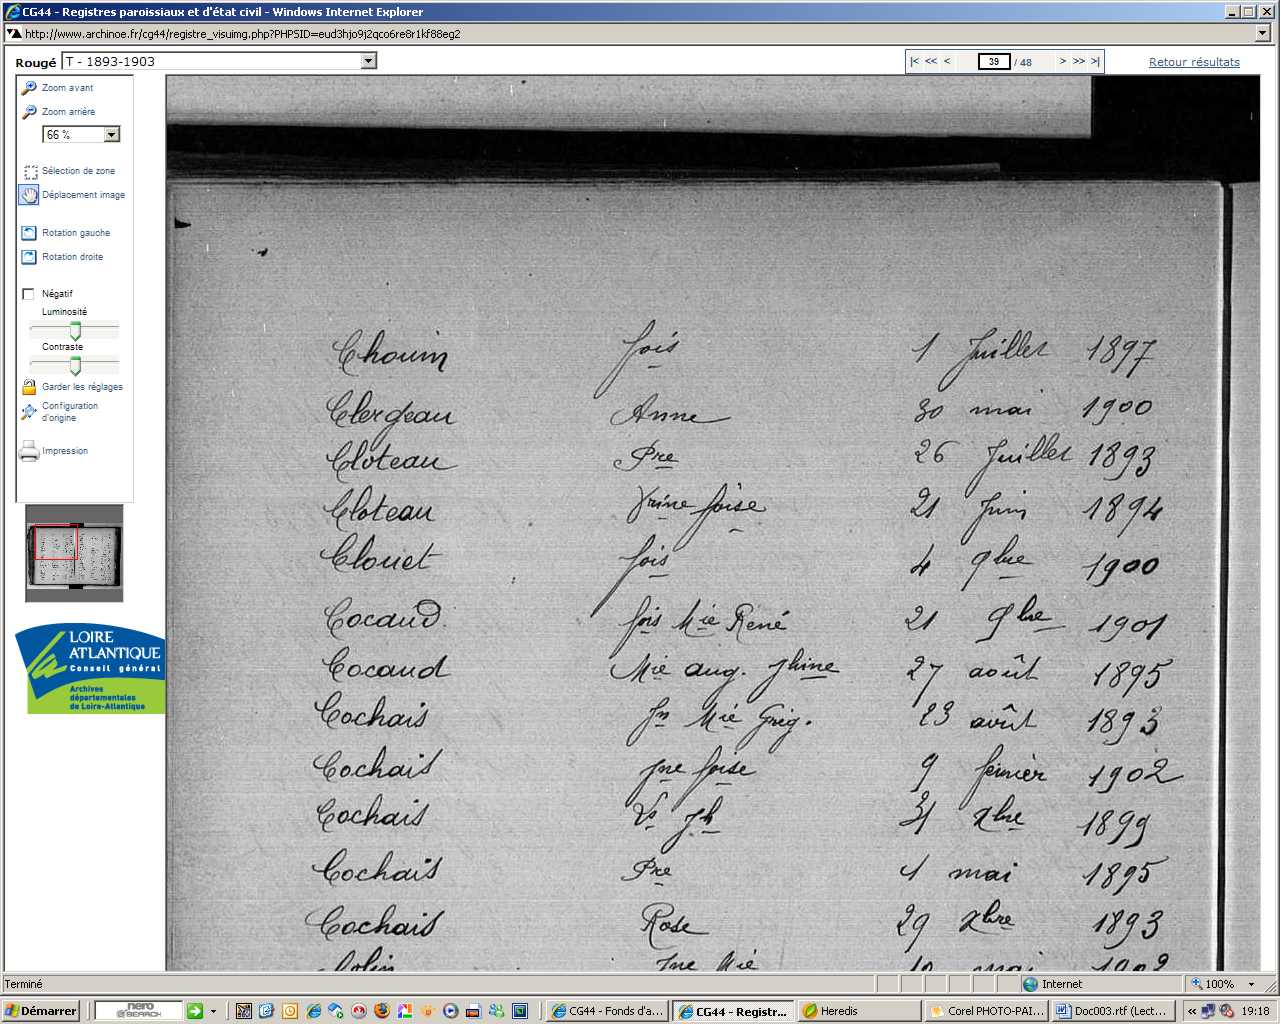 CG44 - Registres paroissiaux et d'état civil - Windows Internet Explorer
http://www.archinoe.fr/cg44/registre_visuimg.php?PHPSID=eud3hjo9j2qco6re8r1kf88eg2
Rougé T - 1893-1903 |< << < 39 / 48 > >> >| Retour résultats
Zoom avant
Zoom arrière
66 %
Sélection de zone
Déplacement image
Rotation gauche
Rotation droite
Négatif
Luminosité
Contraste
Garder les réglages
Configuration
d'origine
Impression
LOIRE
ATLANTIQUE
Conseil général
Archives
départementales
de Loire-Atlantique
Chouin fois 1 Juillet 1897
Clergeau Anne 30 mai 1900
Cloteau Pre 26 Juillet 1893
Cloteau foise 21 Juin 1894
Clouet fois 4 9bre 1900
Cocaud fois Mie René 21 9bre 1901
Cocaud Mie aug. Jhine 27 août 1895
Cochais Jn Mie Grég. 23 août 1893
Cochais Jne foise 9 février 1902
Cochais Jh 31 Xbre 1899
Cochais Pre 1 mai 1895
Cochais Rose 29 Xbre 1893
Colin Jne Mie 10 mai 1902
Terminé Internet 100%
Démarrer nero SEARCH CG44 - Fonds d'a... CG44 - Registr... Heredis Corel PHOTO-PAI... Doc003.rtf (Lect... 19:18